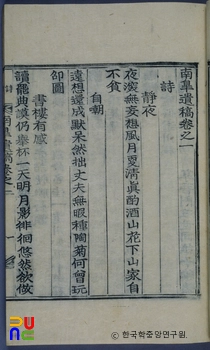 南皐遺稿卷之一
詩
靜夜
夜深無妄想風月更清眞酌酒山花下山家自
不貧
自朝
遠想還成默呆然拙丈夫無暇種陶菊何曾玩
邵圖
書樓有感
讀罷典謨仍擧杯一天明月影徘徊悠然欲倣
南皐遺稿卷之一
© 한국학중앙연구원